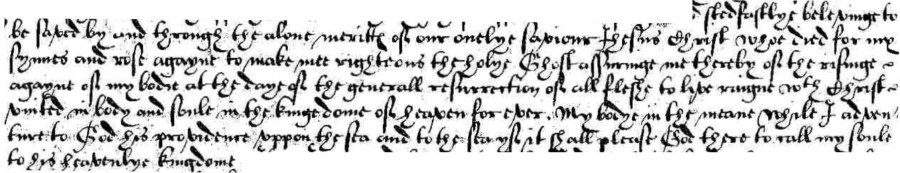 stedfastlye beleevinge to
be saved by and through the alone meritts of our onelye saviour Jhesus Christ whoe died for my
synnes and rose agayne to make mee righteous the holye Ghost assuringe me thereby of the risinge
agayne of my bodie at the daye of the generall resurrection of all fleshe to live raigne wth Christ
vnited in body and soule in the kingedome of heaven for ever. My bodye in the meane while I adven
ture to God his providence vppon the sea and to the sea yf it shall please God there to call my soule
to his heavenlye kingdome